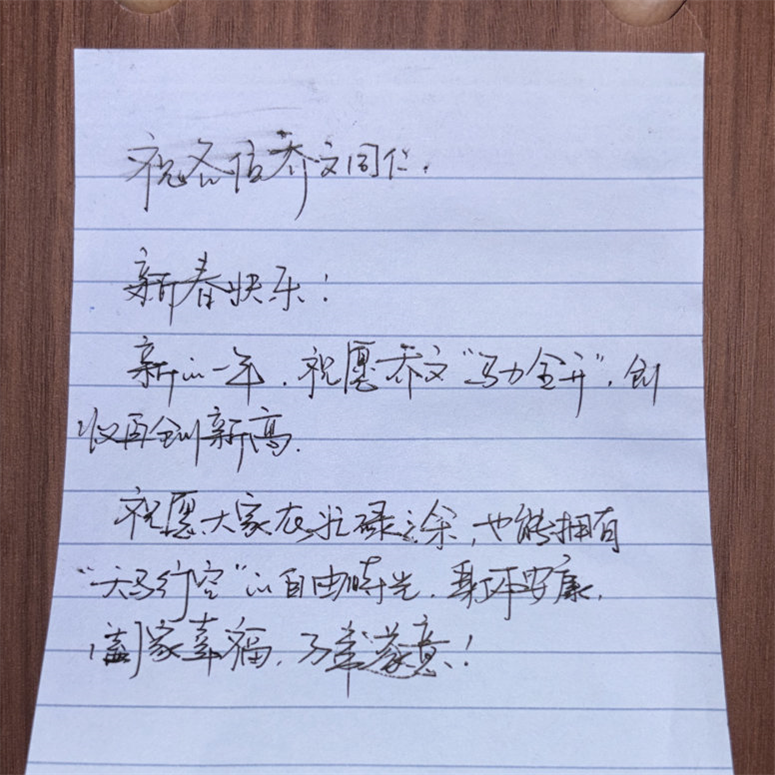 祝各位乔文同仁，
新春快乐！
新的一年，祝愿乔文“马力全开”，创
收再创新高。
祝愿大家在忙碌之余，也能拥有
“天马行空”的自由时光，平安康，
阖家幸福，万事